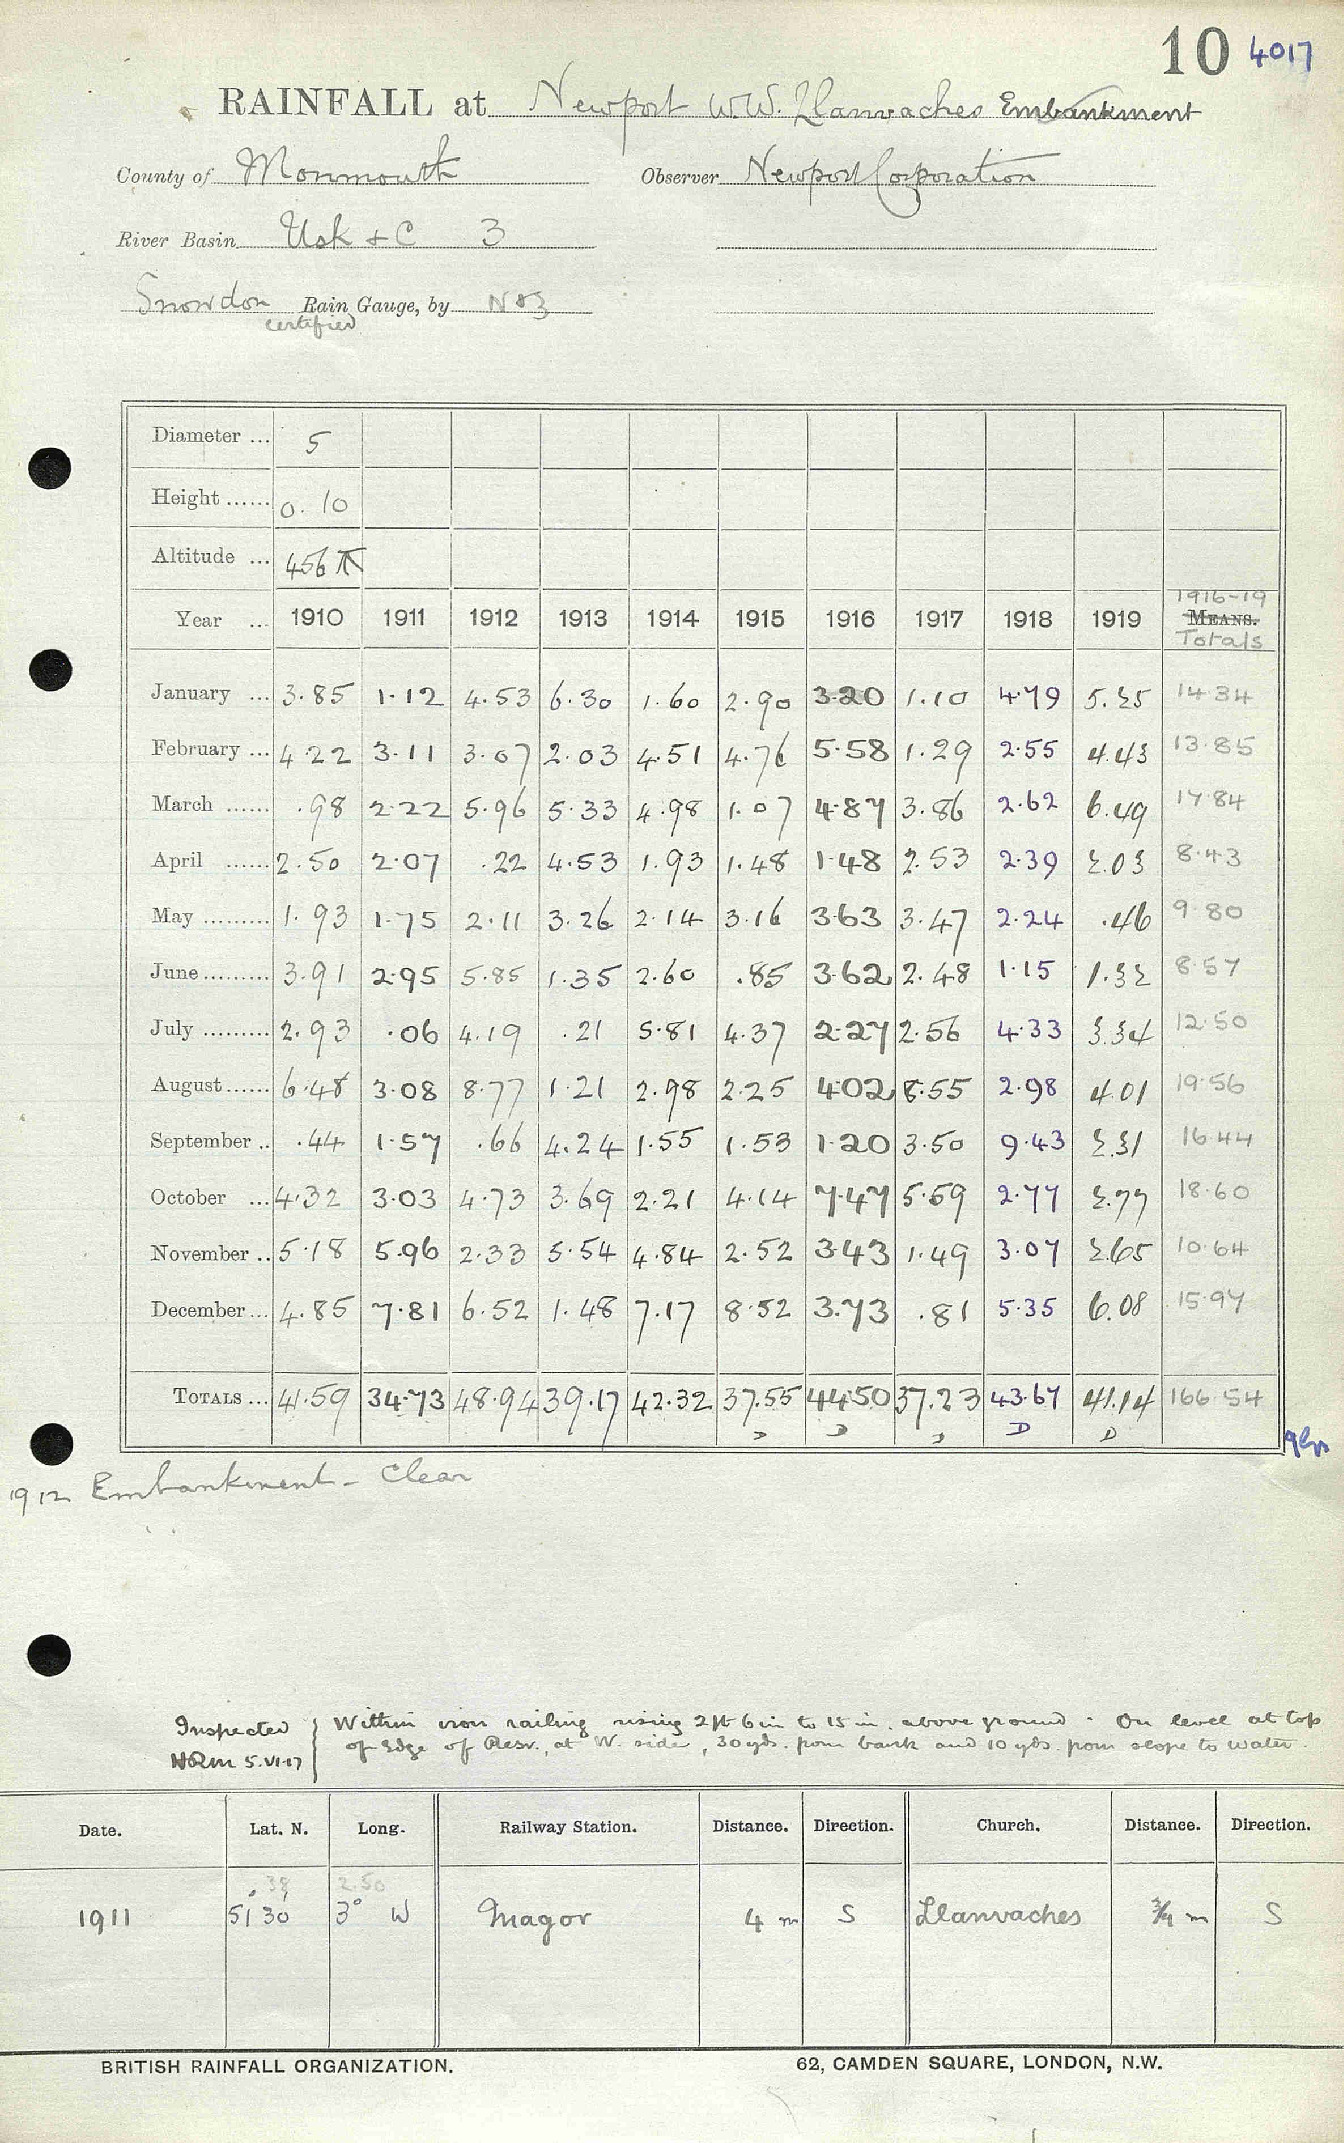 10 4017
RAINFALL at Newport W.W. Llanvaches Embankment
County of Monmouth Observer Newport Corporation
River Basin Usk + C 3
Snowdon Rain Gauge, by NO3
certified
Diameter ... 5
Height ...... 0.10
Altitude ... 456
1916-19
Year ... 1910 1911 1912 1913 1914 1915 1916 1917 1918 1919 MEANS.
Totals
January ... 3.85 1.12 4.53 6.30 1.60 2.90 3.20 1.10 4.79 5.25 14.34
February ... 4 22 3.11 3.07 2.03 4.51 4.76 5.58 1.29 2.55 4.43 13.85
March ...... .98 2.22 5.96 5.33 4.98 1.07 4.87 3.86 2.62 6.49 17.84
April ...... 2.50 2.07 .22 4.53 1.93 1.48 1.48 2.53 2.39 2.03 8.43
May ......... 1.93 1.75 2.11 3.26 2.14 3.16 3.63 3.47 2.24 .46 9.80
June ......... 3.91 2.95 5.85 1.35 2.60 .85 3.62 2.48 1.15 1.32 8.57
July ......... 2.93 .06 4.19 .21 5.81 4.37 2.27 2.56 4.33 3.34 12.50
August ...... 6.48 3.08 8.77 1.21 2.98 2.25 4.02 8.55 2.98 4.01 19.56
September .. .44 1.57 .66 4.24 1.55 1.53 1.20 3.50 9.43 2.31 16.44
October ... 4.32 3.03 4.73 3.69 2.21 4.14 7.47 5.59 2.77 2.77 18.60
November .. 5.18 5.96 2.33 5.54 4.84 2.52 3.43 1.49 3.07 2.65 10.64
December ... 4.85 7.81 6.52 1.48 7.17 8.52 3.73 .81 5.35 6.08 15.97
TOTALS ... 41.59 34.73 48.94 39.17 42.32 37.55 44.50 37.23 43.67 41.14 166.54
D D D D D
1912 Embankment - Clear
Inspected
HRM 5.VI.17
Within iron railing rising 2ft 6in to 15 in. above ground. On level at top
of Edge of Resr., at W. side, 30 yds. from bank and 10 yds. from slope to water.
Date. Lat. N. Long. Railway Station. Distance. Direction. Church. Distance. Direction.
38 2.50
1911 51° 30' 3° W Magor 4 m S Llanvaches ¾ m S
BRITISH RAINFALL ORGANIZATION. 62, CAMDEN SQUARE, LONDON, N.W.